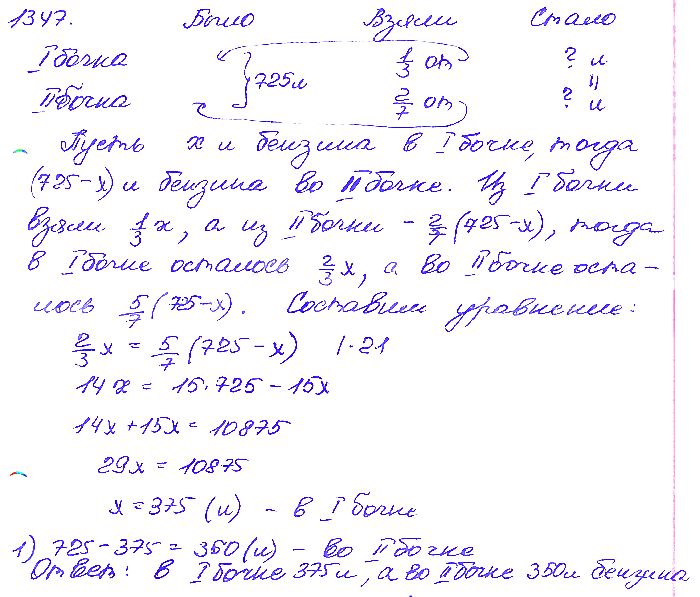 1347. Было Взяли Стало
I бочка 1/3 от ? л
} 725 л "
II бочка 2/7 от ? л
Пусть x л бензина в I бочке, тогда
(725-x) л бензина во II бочке. Из I бочки
взяли 1/3 x, а из II бочки - 2/7 (725-x), тогда
в I бочке осталось 2/3 x, а во II бочке оста-
лось 5/7 (725-x). Составим уравнение:
2/3 x = 5/7 (725-x) |·21
14x = 15·725 - 15x
14x + 15x = 10875
29x = 10875
x = 375 (л) - в I бочке
1) 725 - 375 = 350 (л) - во II бочке
Ответ: в I бочке 375 л, а во II бочке 350 л бензина